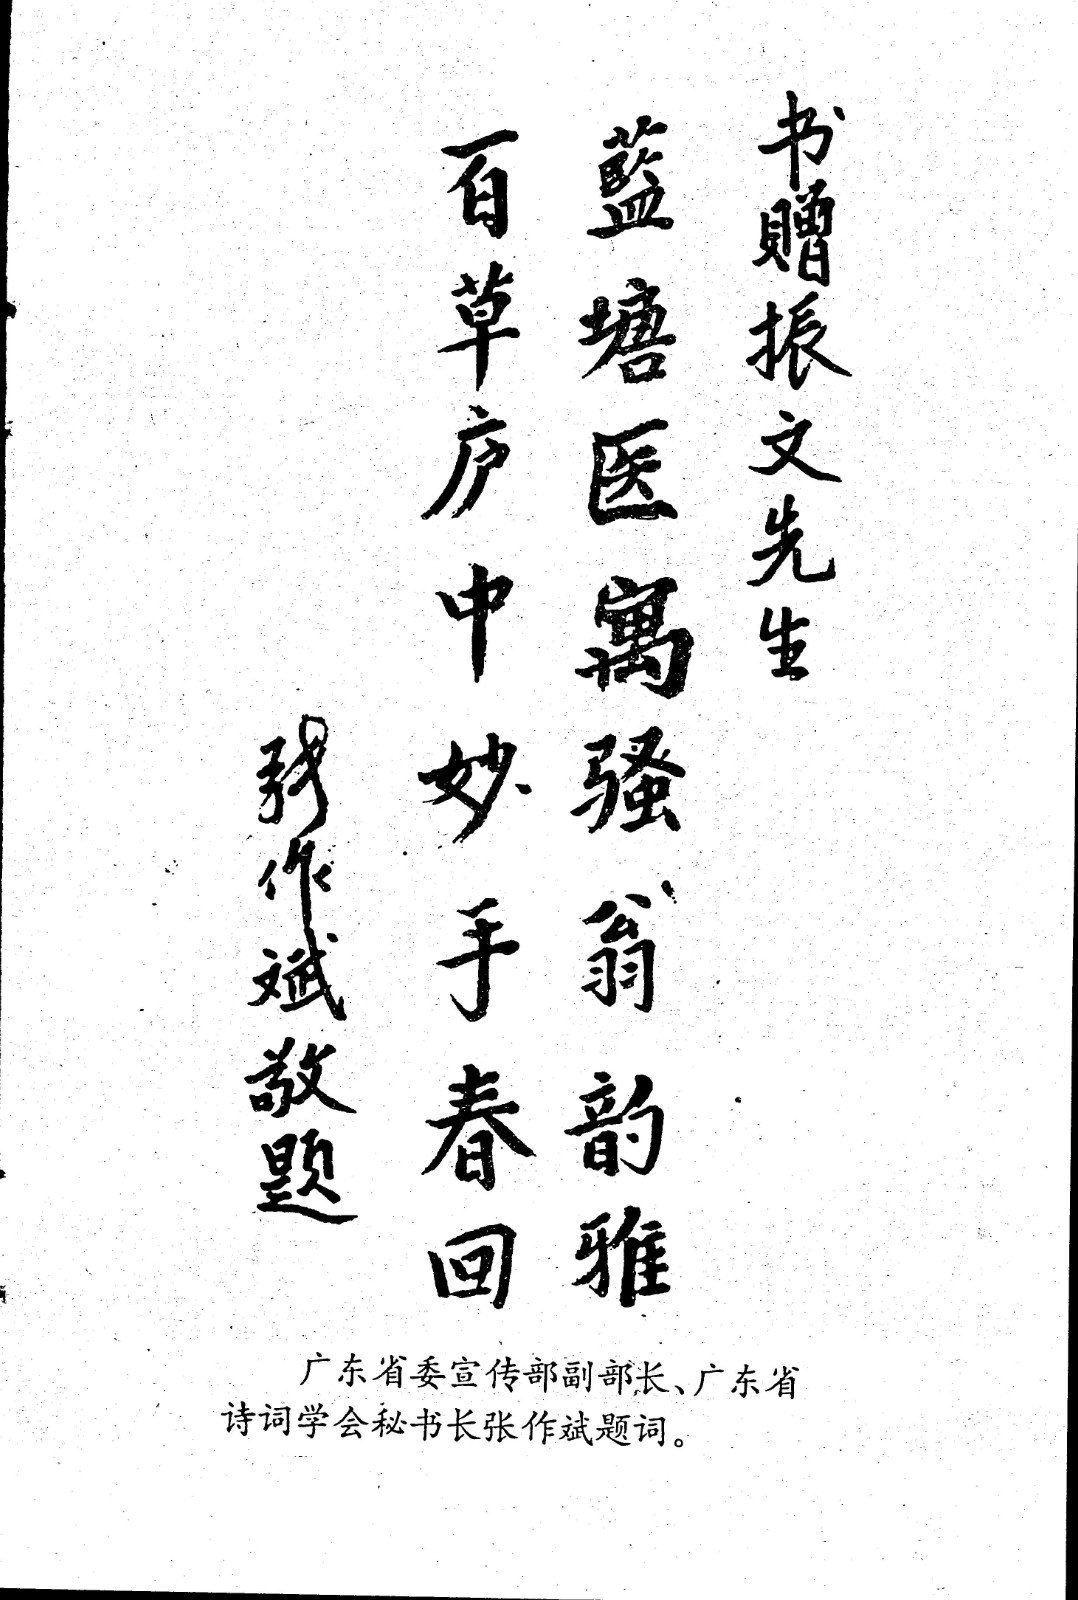 书赠振文先生
蓝塘医寓骚翁韵雅
百草庐中妙手春回
张作斌敬题
广东省委宣传部副部长、广东省
诗词学会秘书长张作斌题词。